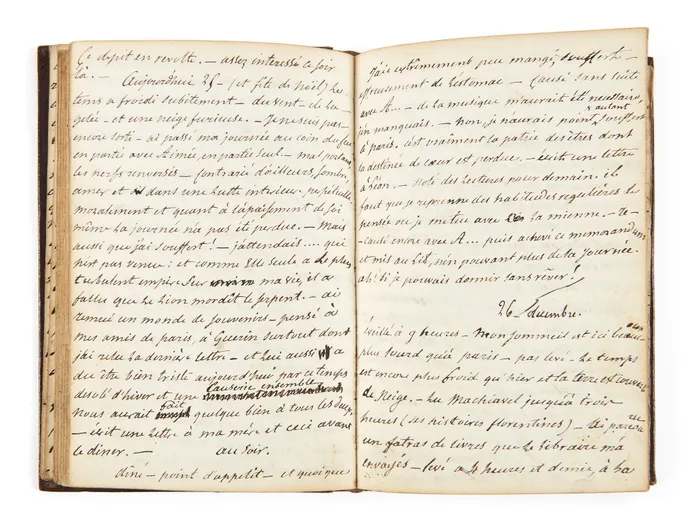 Ce dépit en revolte. — assez interessé ce soir
là. —
Aujourdhui 25 — (et fête de Noël) Le
tems a froidi subitement — du vent — de la
gelée — et une neige furieuse. — Je ne suis pas
encore sorti — ai passé ma journée au coin du feu
en partie avec Aimée, en partie seul — mal portant
les nerfs renversés — contrarié d'ailleurs, sombre
amer et dans une Lutte interieure, perpétuelle
moralement et quant à l'apaisement de soi
même La journée n'a pas été perdue. — mais
aussi que j'ai souffert! — j'attendais.... qui
n'est pas venue: et comme Elle seule a le plus
turbulent empire sur ma vie, il a
fallu que Le Lion mordît le serpent. — ai
remué un monde de souvenirs — pensé à
mes amis de paris, à Guérin surtout dont
j'ai relu La dernière Lettre — et Lui aussi a
du être bien triste aujourd'hui par ce temps
desolé d'hiver et une causerie ensemble
nous aurait fait quelque bien à tous les deux,
— écrit une Lettre à ma mère et ceci avant
Le diner. — au soir.
diné — point d'appetit — et quoique
j'aie extrêmement peu mangé, souffert
affreusement de L'estomac — causé sans suite
avec A... — de la musique m'aurait été necessaire,
j'en manquais. — non, je n'aurais point autant souffert
à paris. c'est vraiment la patrie des êtres dont
La destinée de cœur est perdue. — écrit une lettre
à Léon. — noté des Lectures pour demain. il
faut que je reprenne des habitudes regulières de
pensée ou je metue avec La mienne. — re-
-causé encore avec A... puis achevé ce memorandum
et mis au Lit, n'en pouvant plus de La journée.
ah! si je pouvais dormir sans rêver!
26 decembre.
éveillé à 9 heures — mon sommeil est ici beaucoup
plus lourd qu'à paris — pas levé — Le temps
est encore plus froid qu'hier et la terre est couverte
de Neige. — Lu Machiavel jusqu'à trois
heures (ses histoires florentines) — ai parcouru
un fatras de livres que Le Libraire m'a
envoyés — levé à 4 heures et demie, à La